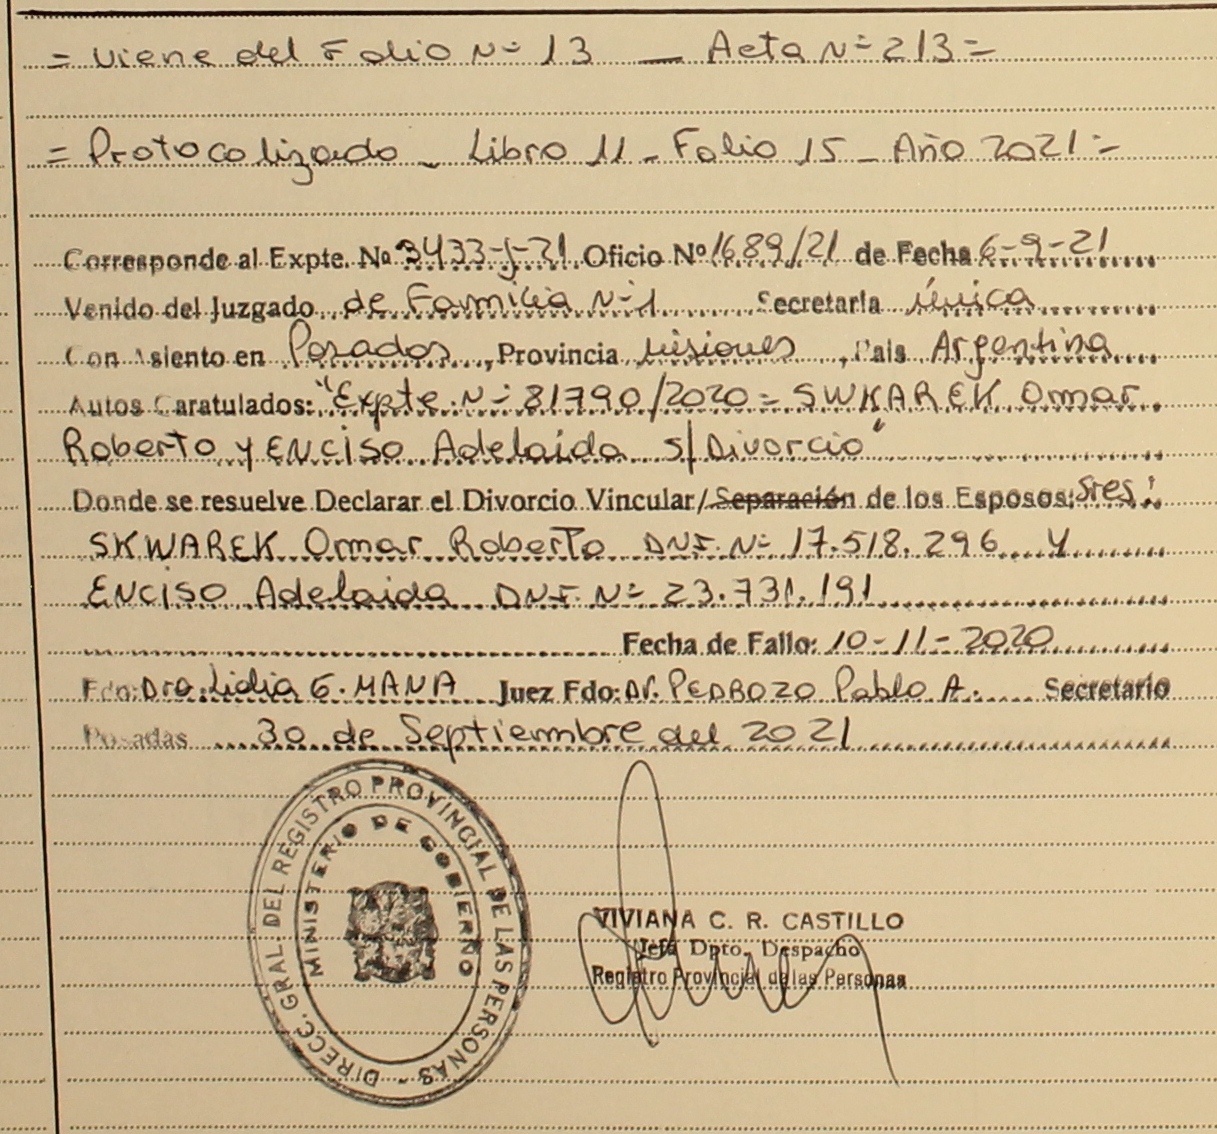 = Viene del Folio Nº 13 — Acta Nº 213 =
= Protocolizado - Libro 11 - Folio 15 - Año 2021 =
Corresponde al Expte. Nº 3433-J-21 Oficio Nº 1689/21 de Fecha 6-9-21
Venido del Juzgado de Familia Nº 1 Secretaria única
Con Asiento en Posadas, Provincia Misiones, Pais Argentina
Autos Caratulados: "Expte. Nº 81790/2020 = SWKAREK Omar
Roberto y ENCISO Adelaida s/ Divorcio"
Donde se resuelve Declarar el Divorcio Vincular/Separación de los Esposos: sres:
SKWAREK Omar Roberto DNI. Nº 17.518.296 y
ENCISO Adelaida DNI. Nº 23.731.191
Fecha de Fallo: 10-11-2020
Fdo: Dra. Lidia G. MANA Juez Fdo: Dr. PEDROZO Pablo A. Secretario
Posadas 30 de Septiembre del 2021
DIRECC. GRAL. DEL REGISTRO PROVINCIAL DE LAS PERSONAS -
MINISTERIO DE GOBIERNO
VIVIANA C. R. CASTILLO
Jefa Dpto. Despacho
Registro Provincial de las Personas